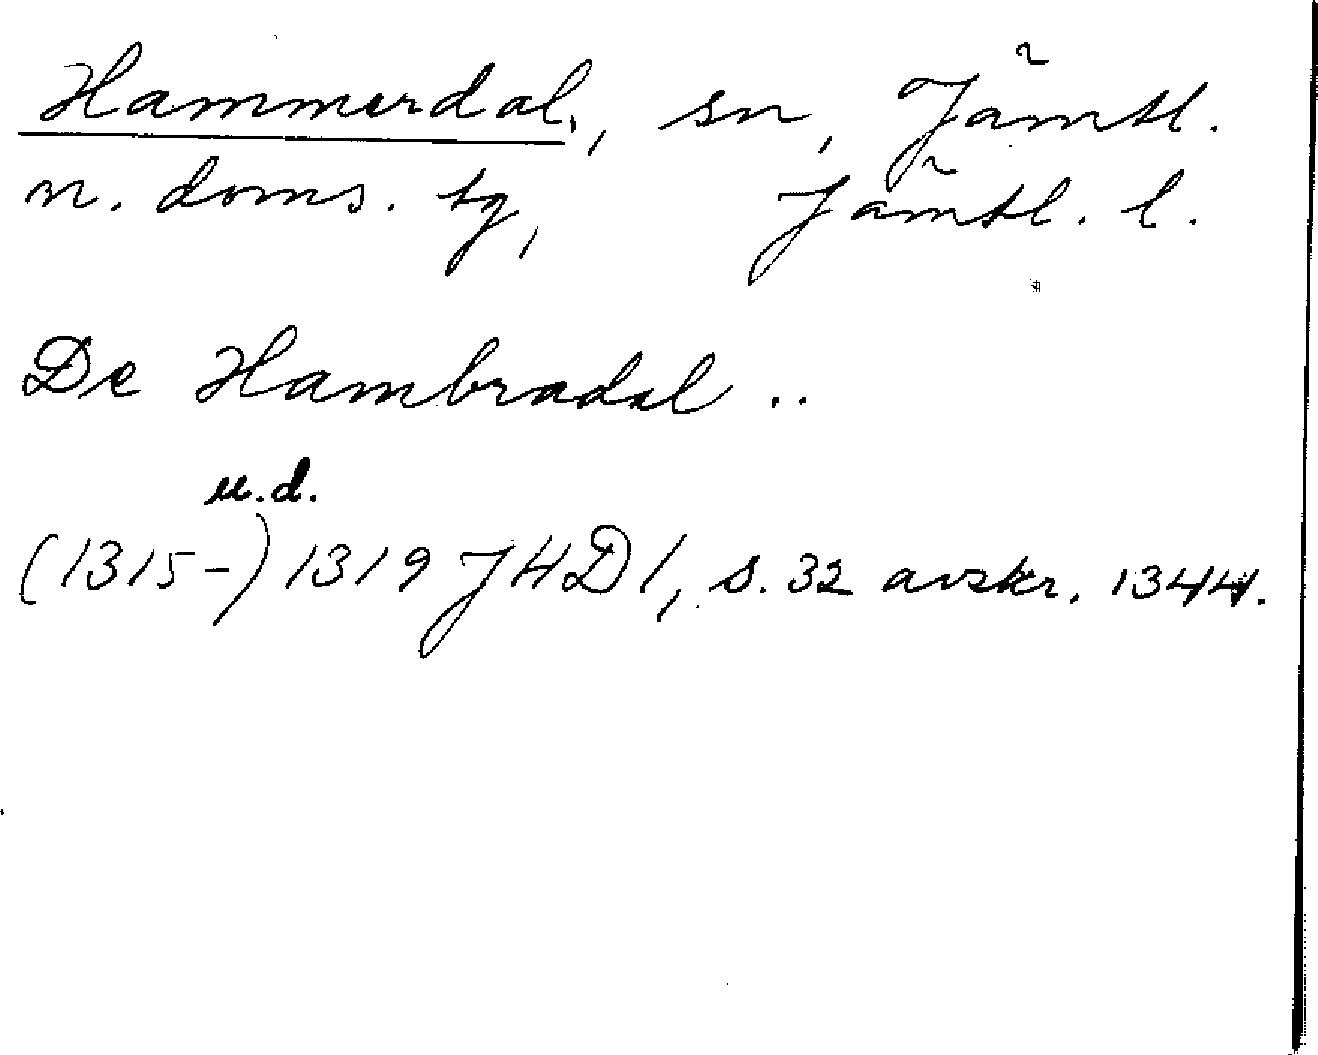 Hammerdal, sn, Jämtl.
n. doms. tg, Jämtl. l.
De Hambradal ..
u.d.
(1315-) 1319 JHD 1, s. 32 avskr. 1344.